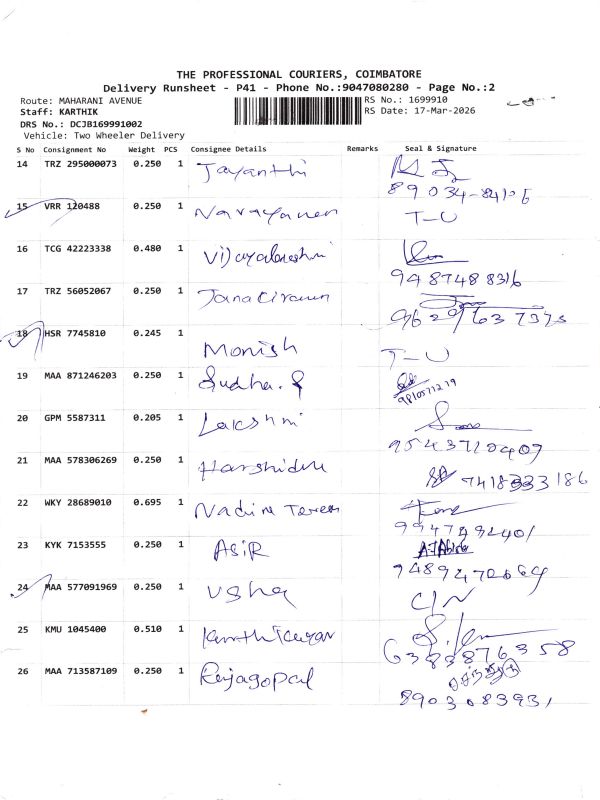 THE PROFESSIONAL COURIERS, COIMBATORE
Delivery Runsheet - P41 - Phone No.:9047080280 - Page No.:2
Route: MAHARANI AVENUE RS No.: 1699910
Staff: KARTHIK RS Date: 17-Mar-2026
DRS No.: DCJB169991002
Vehicle: Two Wheeler Delivery
S No Consignment No Weight PCS Consignee Details Remarks Seal & Signature
14 TRZ 295000073 0.250 1 Jayanthi
89034-84106
15 VRR 120488 0.250 1 Narayanan T-U
16 TCG 42223338 0.480 1 Vijayalakshmi
9487488316
17 TRZ 56052067 0.250 1
9629763737
18 HSR 7745810 0.245 1 Monish T-U
19 MAA 871246203 0.250 1 Sudha.S
20 GPM 5587311 0.205 1 Lakshmi
9543710407
21 MAA 578306269 0.250 1 7418333186
22 WKY 28689010 0.695 1 Nadira
9947492401
23 KYK 7153555 0.250 1 ASIR
9489470664
24 MAA 577091969 0.250 1 Usha C/N
25 KMU 1045400 0.510 1 Karthikeyan
6383876358
26 MAA 713587109 0.250 1 Rajagopal
8903083931